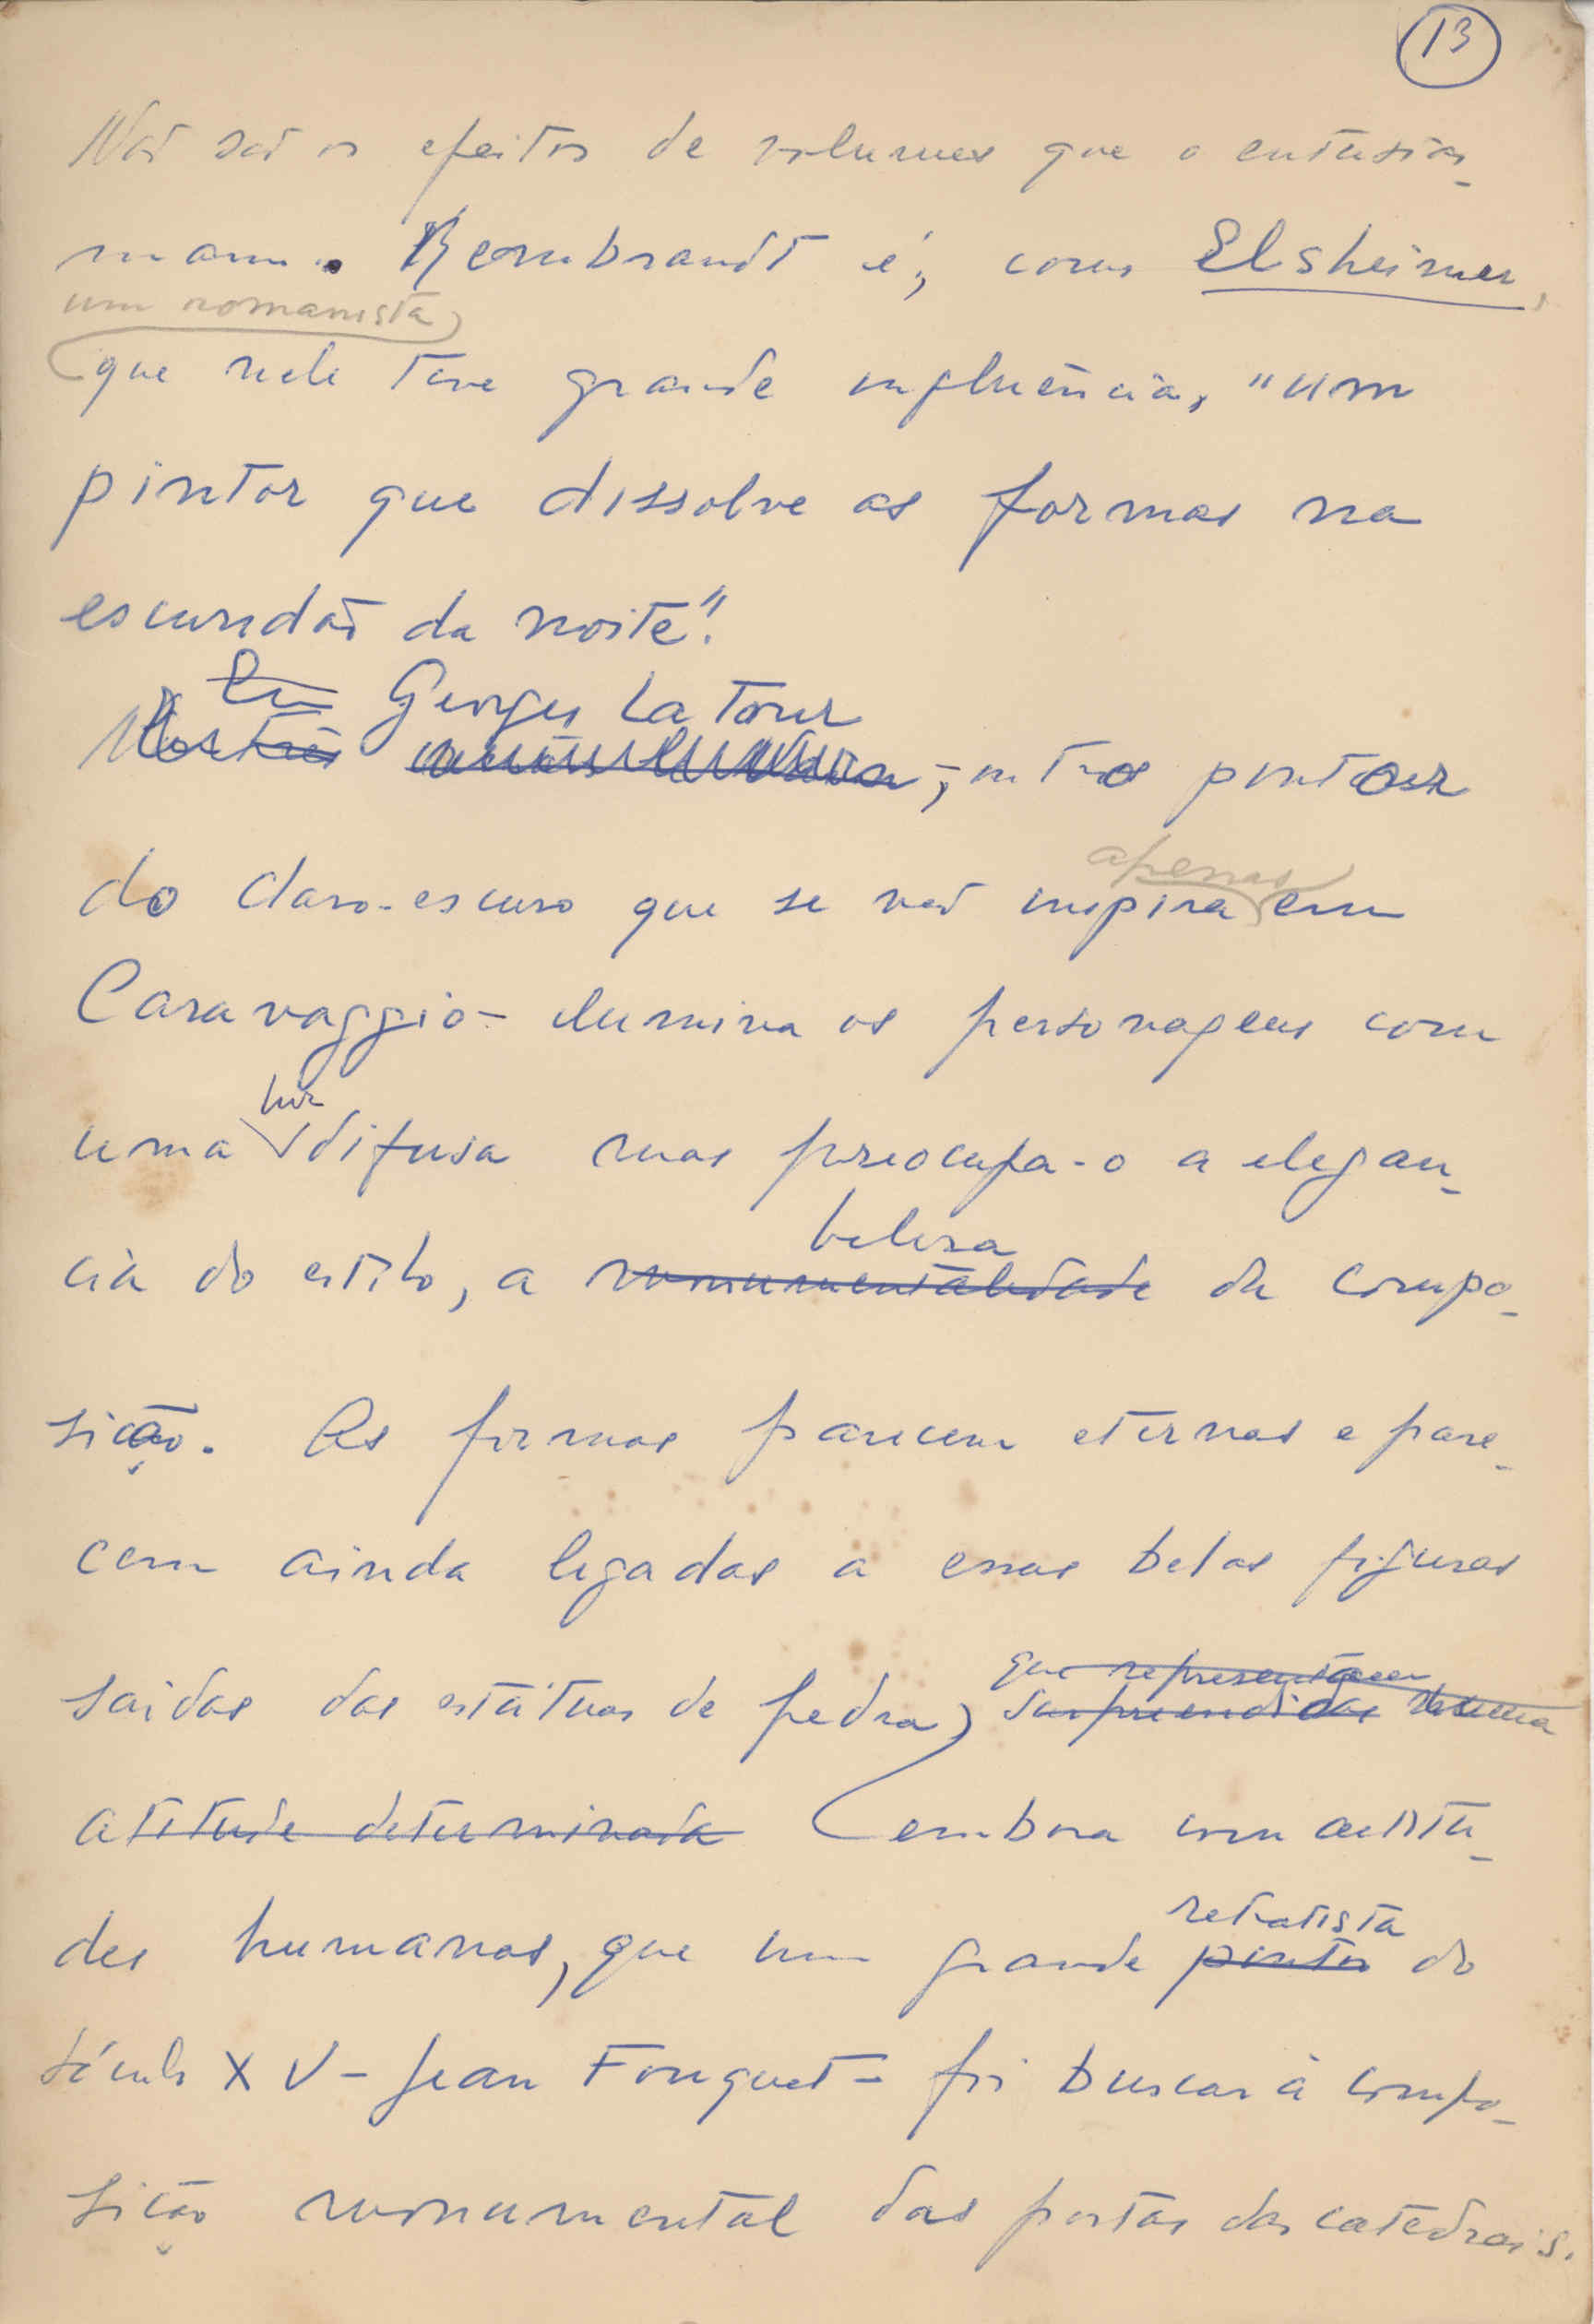 13
Não são os efeitos de volumes que o entusias-
mam. Rembrandt é, como Elsheimer,
um romanista
que nele teve grande influência, "um
pintor que dissolve as formas na
escuridão da noite".
Georges La Tour
, outro pintor
do claro-escuro que se não inspira em
apenas
Caravaggio - ilumina os personagens com
luz
uma difusa mas preocupa-o a elegan-
beleza
cia do estilo, a monumentalidade da compo-
sição. As formas parecem eternas e pare-
cem ainda ligadas a essas belas figuras
que representavam
saidas das estátuas de pedra, surpreendidas numa
atitude determinada embora com atitu-
retratista
des humanas, que um grande pintor do
século XV - Jean Fouquet - foi buscar à compo-
sição monumental das portas das catedrais.